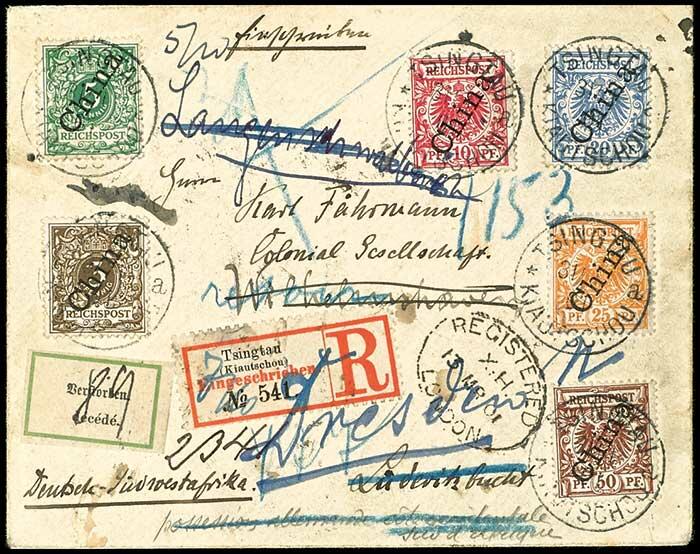 Einschreiben
China
REICHSPOST
REICHSPOST
China
PF. 10 PF.
REICHSPOST
China
PF. 20 PF.
TSINGTAU
KIAUTSCHOU
a
Langenschwalbach
1153
Herrn
Karl Fährmann
Colonial Gesellschaft.
Wilhelmshaven
China
REICHSPOST
REICHSPOST
China
PF. 25 PF.
TSINGTAU
KIAUTSCHOU
a
Tsingtau
(Kiautschou)
Eingeschrieben
No 541
R
REGISTERED
X.H
13 MR 01
LONDON
Verstorben.
Décédé.
Dresden
REICHSPOST
China
PF. 50 PF.
234
Deutsch-Südwestafrika
Lüderitzbucht
possession allemande côte occidentale
sud d'afrique